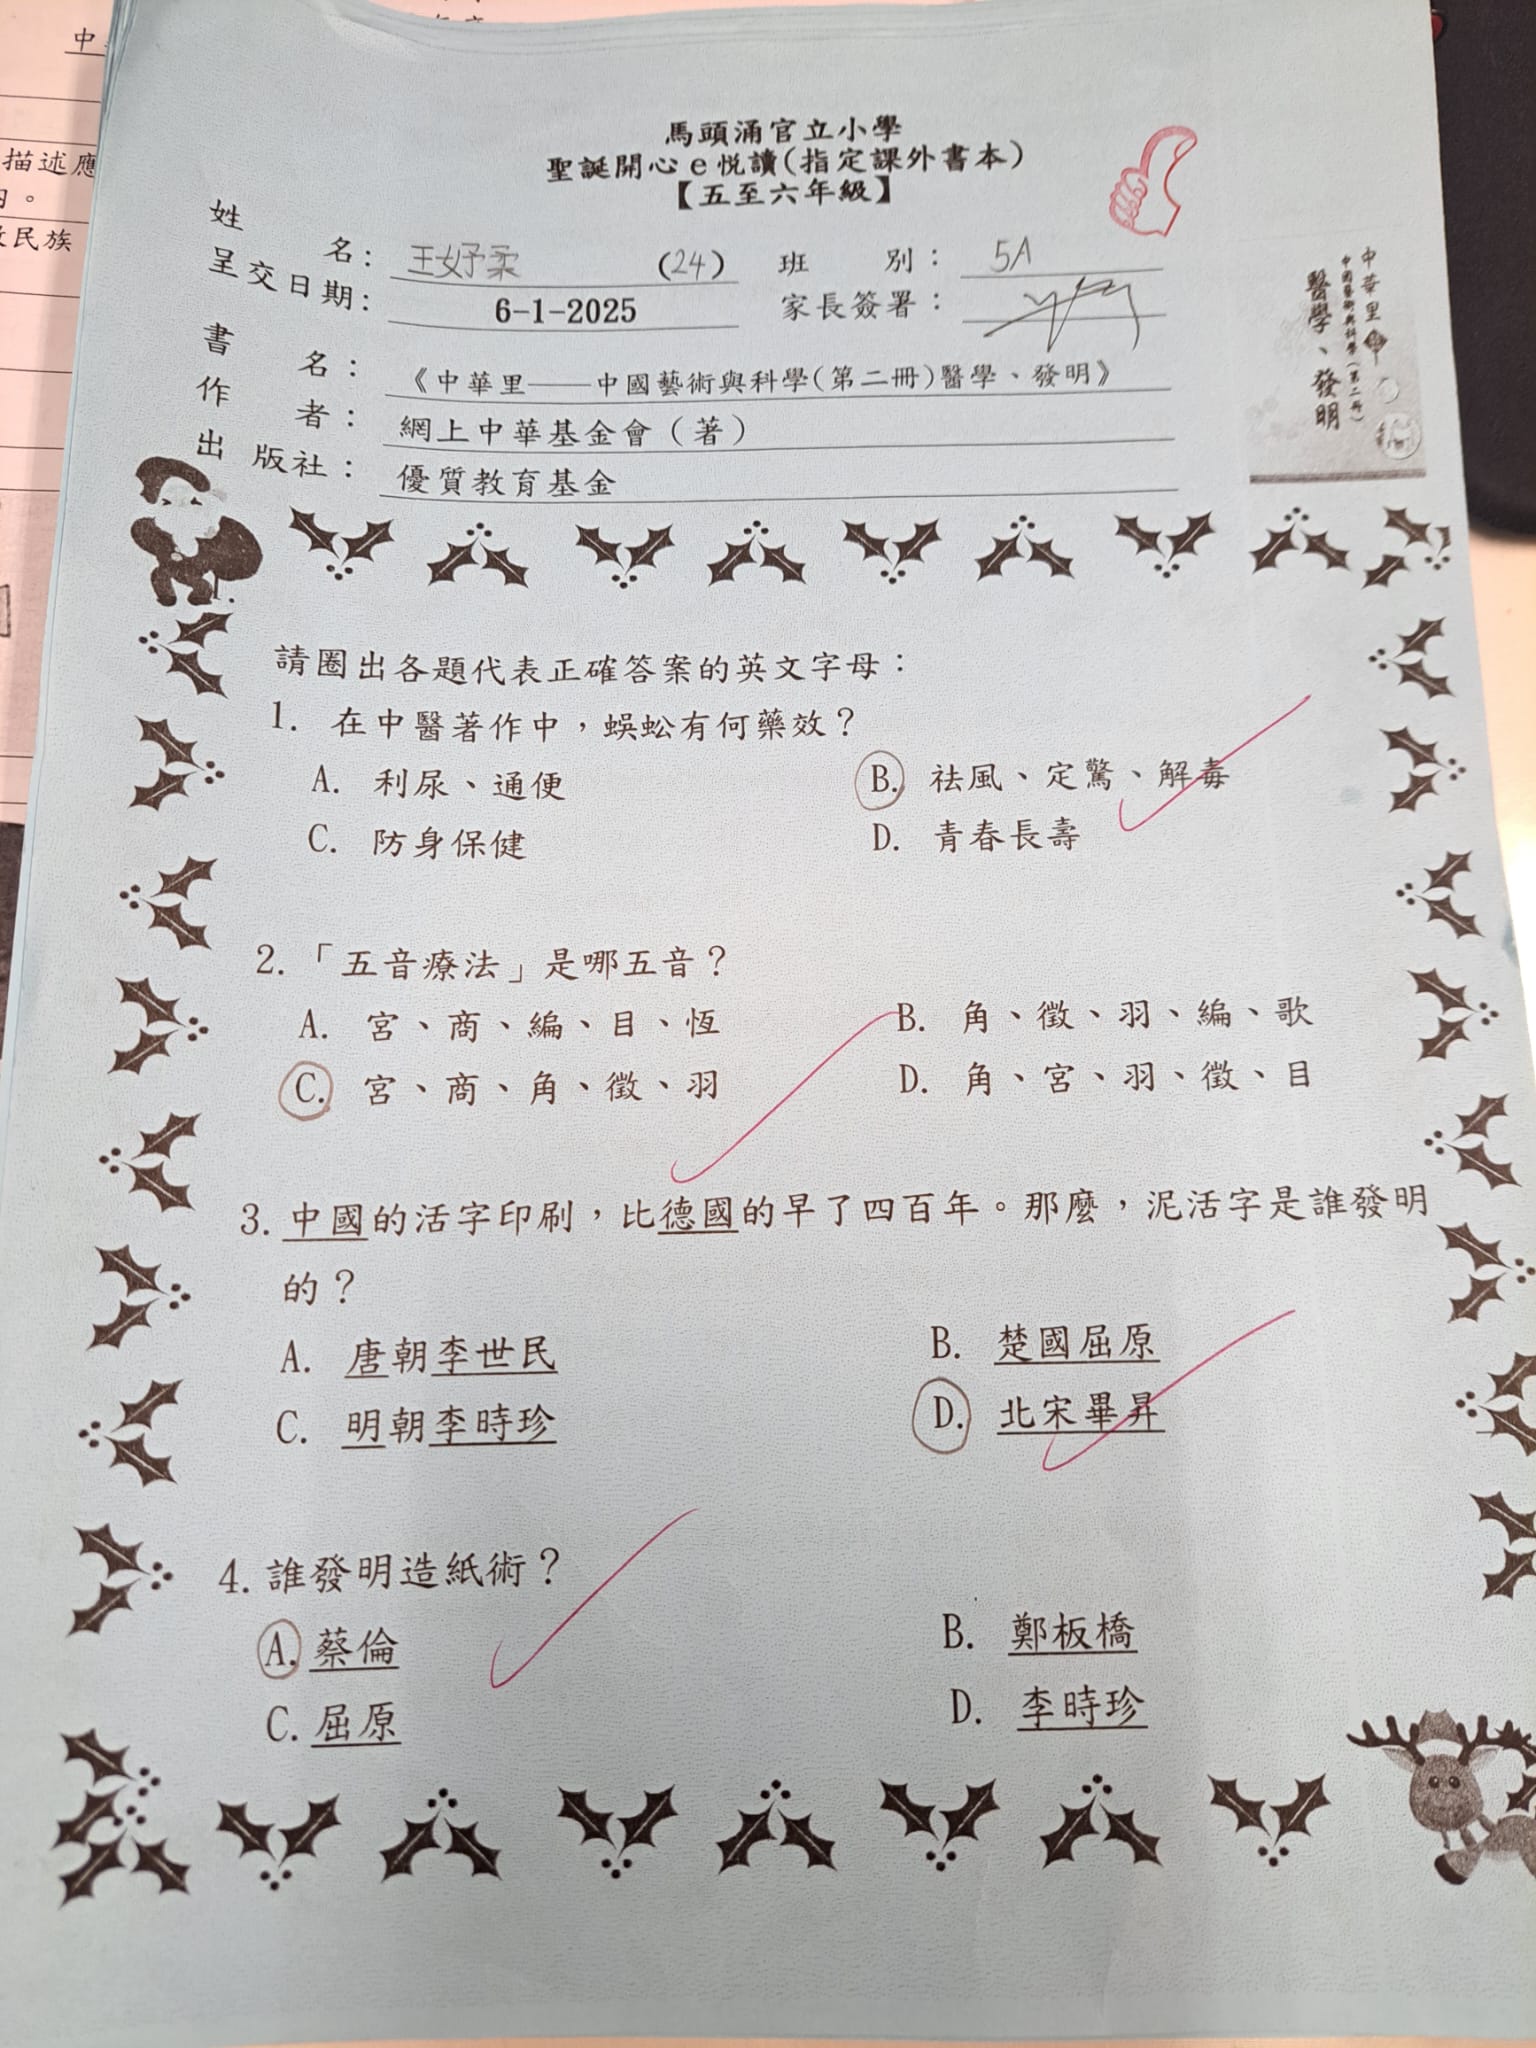 中
描述應
。
民族
馬頭涌官立小學
聖誕開心e悅讀(指定課外書本)
【五至六年級】
姓 名： 王妤柔 (24) 班 別： 5A
呈交日期： 6-1-2025 家長簽署：
書 名： 《中華里——中國藝術與科學(第二冊)醫學、發明》
作 者： 網上中華基金會(著)
出 版社： 優質教育基金
中華里
中國藝術與科學(第二冊)
醫學、發明
請圈出各題代表正確答案的英文字母：
1. 在中醫著作中，蜈蚣有何藥效？
A. 利尿、通便 B. 祛風、定驚、解毒
C. 防身保健 D. 青春長壽
2.「五音療法」是哪五音？
A. 宮、商、編、目、恆 B. 角、徵、羽、編、歌
C. 宮、商、角、徵、羽 D. 角、宮、羽、徵、目
3. 中國的活字印刷，比德國的早了四百年。那麼，泥活字是誰發明
的？
A. 唐朝李世民 B. 楚國屈原
C. 明朝李時珍 D. 北宋畢昇
4. 誰發明造紙術？
A. 蔡倫 B. 鄭板橋
C. 屈原 D. 李時珍